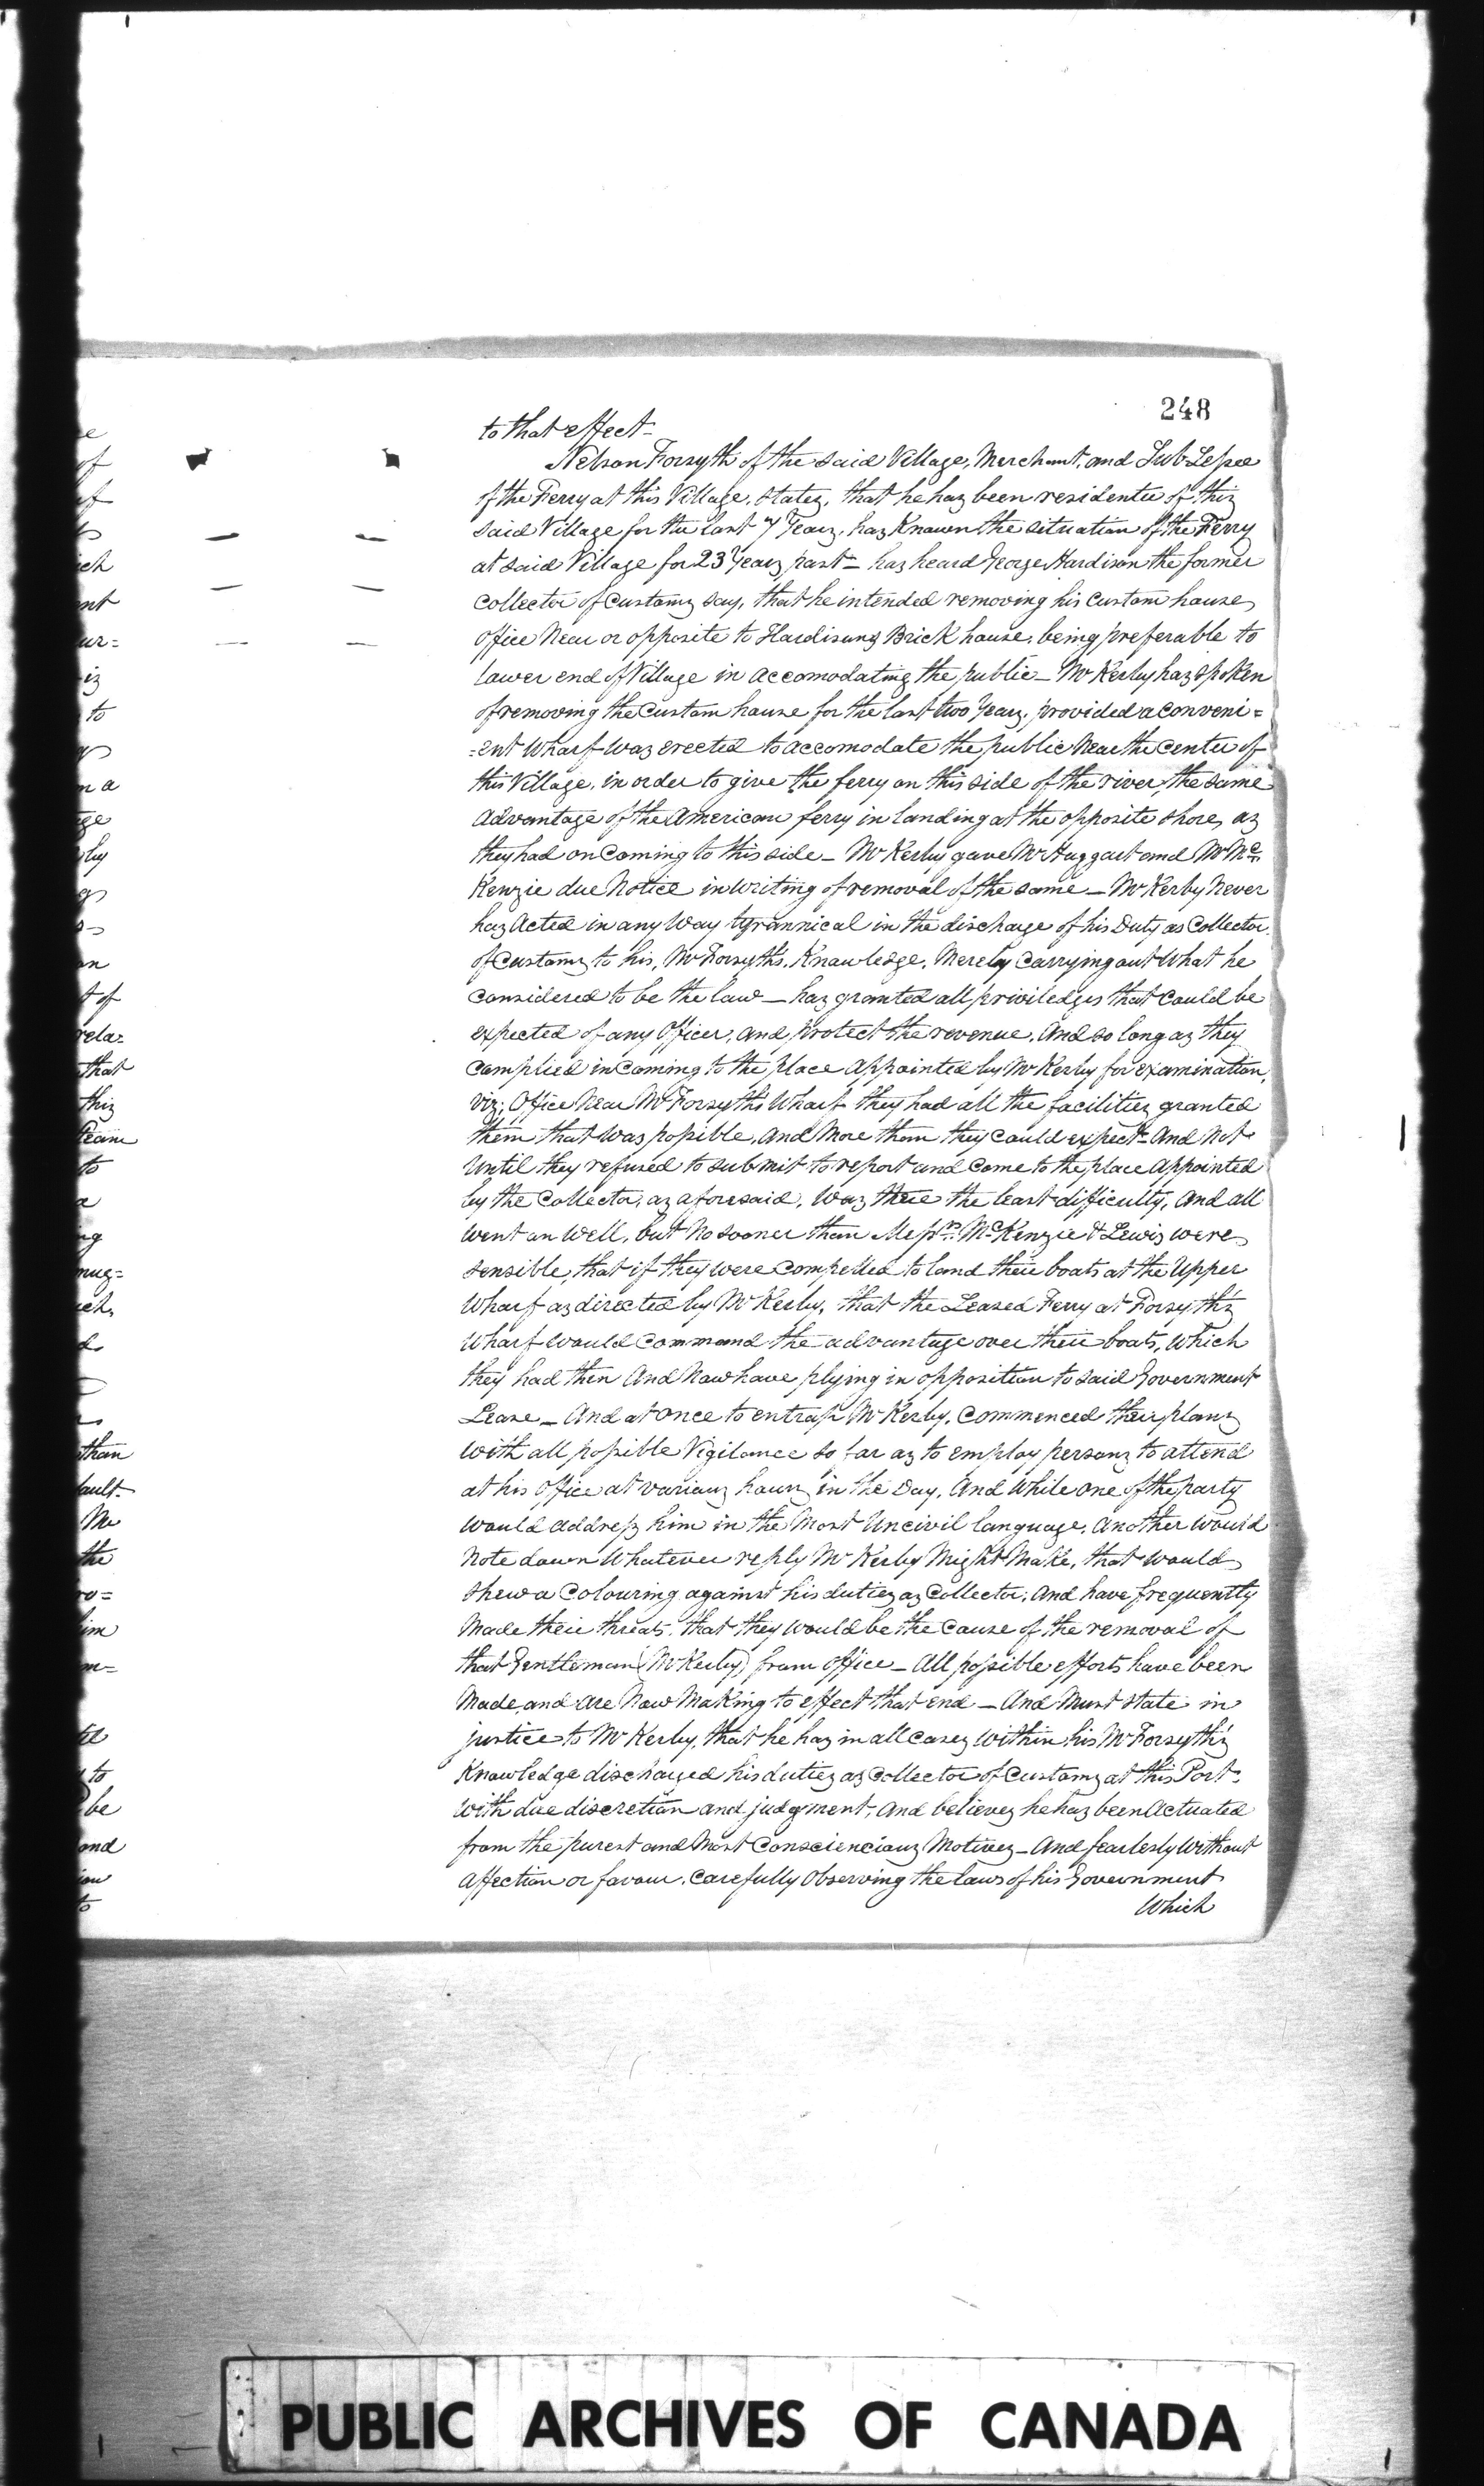 248
to that effect-
Nelson Forsyth of the said Village, Merchant, and Sub Lessee
of the Ferry at this Village, states, that he has been residenter of this
said Village for the last 7 Years, has Known the situation of the Ferry
at said Village for 23 Years past - has heard George Hardison the former
Collector of Customs say, that he intended removing his Custom house
Office Near or opposite to Hardisons Brick house, being preferable to
lower end of Village in accomodating the public - Mr Kerby has spoken
of removing the Custom house for the last two Years, provided a conveni=
=ent Wharf was erected to accomodate the public Near the Center of
this Village, in order to give the ferry on this side of the river, the same
Advantage of the American ferry in landing at the opposite shore, as
they had on Coming to this side - Mr Kerby gave Mr Huggart and Mr Mc
Kenzie due Notice in writing of removal of the same - Mr Kerby Never
has Acted in any Way tyrannical in the discharge of his Duty as Collector
of Customs to his, Mr Forsyths, Knowledge, Merely Carrying out What he
Considered to be the law - has granted all priviledges that Could be
expected of any Officer, and protect the revenue, And so long as they
Complied in Coming to the place Appointed by Mr Kerby for examination,
Viz; Office Near Mr Forsyth's Wharf they had all the facilities granted
them that Was possible, And More than they Could expect - And Not
Until they refused to submit to report and Come to the place Appointed
by the Collector, as aforesaid, Was there the least difficulty, And all
Went on Well, but No sooner than Messrs McKenzie & Lewis were
sensible, that if they were Compelled to land their boats at the Upper
Wharf as directed by Mr Kerby, that the Leased Ferry at Forsyth's
Wharf Would Command the advantage over their boats, Which
they had then And Now have plying in opposition to said Government
Lease - And at once to entrap Mr Kerby, Commenced their plans
With all possible Vigilance so far as to employ persons to attend
at his Office at various hours in the Day, And While One of the party
Would Address him in the Most Uncivil language, Another Would
Note down Whatever reply Mr Kerby Might Make, that Would
shew a Colouring against his duties as Collector, And have frequently
Made their threats, that they Would be the Cause of the removal of
that Gentleman (Mr Kerby) from Office - All possible efforts have been
Made, and are Now Making to effect that end - And Must state in
justice to Mr Kerby, that he has in all Cases Within his Mr Forsyth's
Knowledge discharged his duties as Collector of Customs at this Port,
With due discretion and judgment, And believes he has been Actuated
from the purest and Most Consciencious Motives - And fearlesly Without
Affection or favour, Carefully Observing the laws of his Government
Which
PUBLIC ARCHIVES OF CANADA